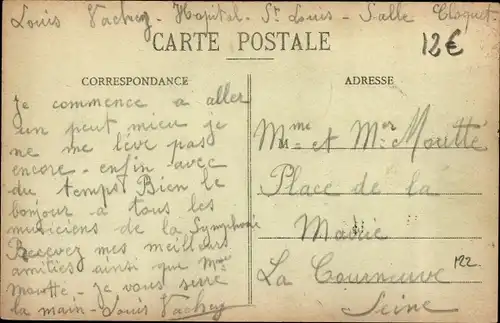 Louis Vachey - Hopital - St Louis - Salle Cloquet
CARTE POSTALE
12€
CORRESPONDANCE
Je commence a aller
un peut mieu je
ne me lève pas
encore - enfin avec
du temps Bien le
bonjour a tous les
musiciens de la Symphonie
Recevez mes meilleurs
amitiés ainsi que Mme
Moutte - Je vous serre
la main - Louis Vachey
ADRESSE
Mme et Mer Moutté
Place de la
Mairie
La Courneuve
122
Seine